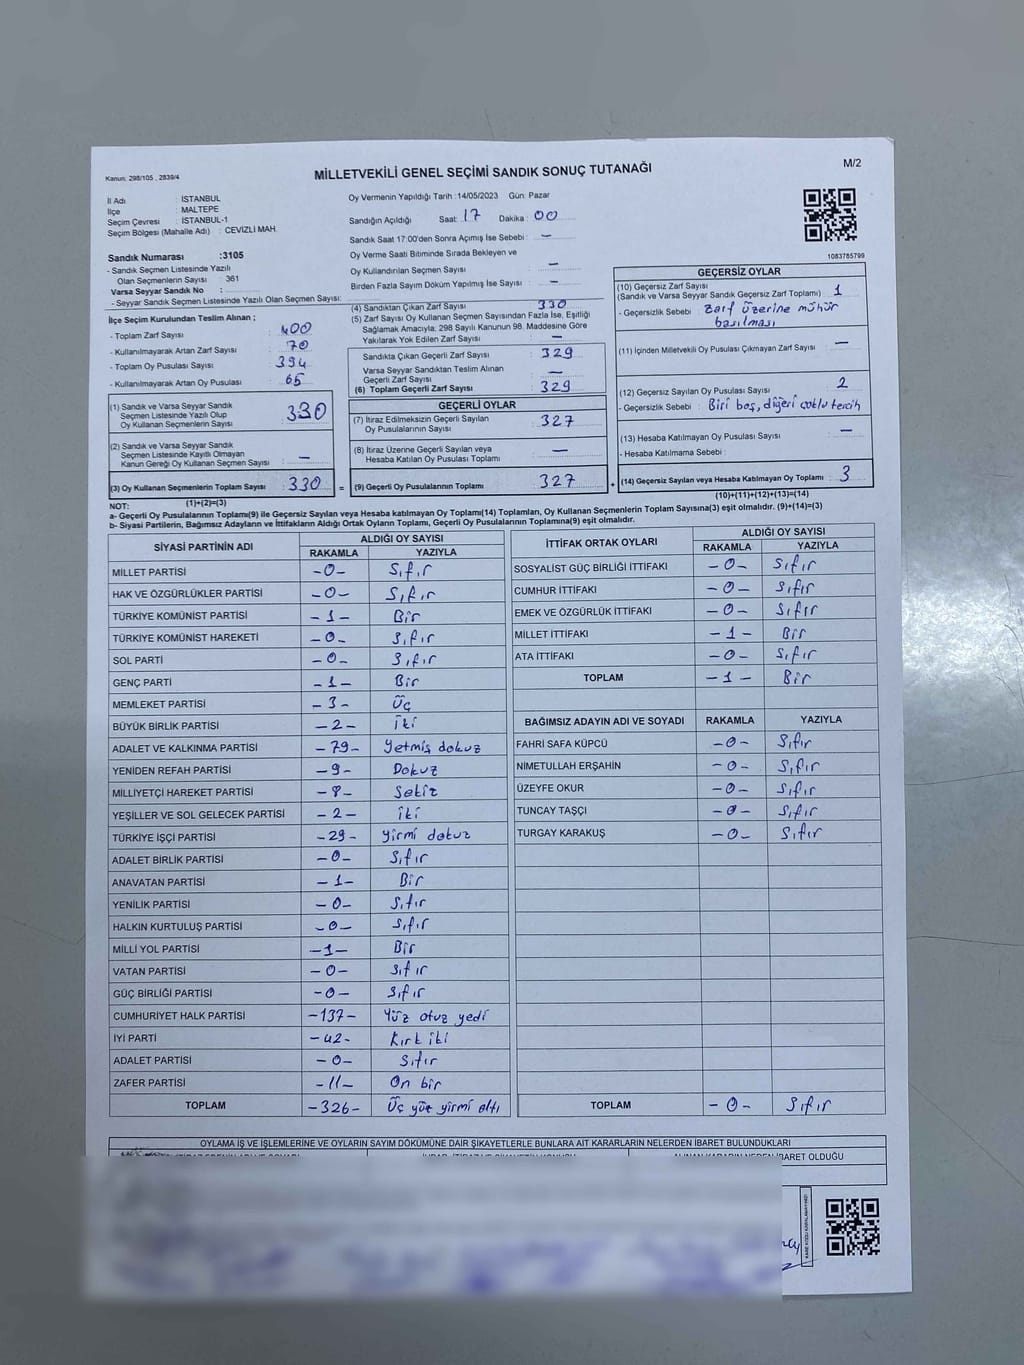 Kanun: 298/105 , 2839/4
MİLLETVEKİLİ GENEL SEÇİMİ SANDIK SONUÇ TUTANAĞI
M/2
İl Adı : İSTANBUL
İlçe : MALTEPE
Seçim Çevresi : İSTANBUL-1
Seçim Bölgesi (Mahalle Adı) : CEVİZLİ MAH.
Sandık Numarası :3105
- Sandık Seçmen Listesinde Yazılı
Olan Seçmenlerin Sayısı : 361
Varsa Seyyar Sandık No :
- Seyyar Sandık Seçmen Listesinde Yazılı Olan Seçmen Sayısı:
Oy Vermenin Yapıldığı Tarih :14/05/2023 Gün: Pazar
Sandığın Açıldığı Saat: 17 Dakika : 00
Sandık Saat 17:00'den Sonra Açımış İse Sebebi : —
Oy Verme Saati Bitiminde Sırada Bekleyen ve
Oy Kullandırılan Seçmen Sayısı : —
Birden Fazla Sayım Döküm Yapılmış İse Sayısı : —
1083785799
İlçe Seçim Kurulundan Teslim Alınan ;
- Toplam Zarf Sayısı : 400
- Kullanılmayarak Artan Zarf Sayısı : 70
- Toplam Oy Pusulası : 394
- Kullanılmayarak Artan Oy Pusulası : 65
(1) Sandık ve Varsa Seyyar Sandık
Seçmen Listesinde Yazılı Olup
Oy Kullanan Seçmenlerin Sayısı : 330
(2) Sandık ve Varsa Seyyar Sandık
Seçmen Listesinde Kayıtlı Olmayan
Kanun Gereği Oy Kullanan Seçmen Sayısı : —
(3) Oy Kullanan Seçmenlerin Toplam Sayısı : 330 =
(1)+(2)=(3)
(4) Sandıktan Çıkan Zarf Sayısı : 330
(5) Zarf Sayısı Oy Kullanan Seçmen Sayısından Fazla İse, Eşitliği
Sağlamak Amacıyla, 298 Sayılı Kanunun 98. Maddesine Göre
Yakılarak Yok Edilen Zarf Sayısı : —
Sandıkta Çıkan Geçerli Zarf Sayısı : 329
Varsa Seyyar Sandıktan Teslim Alınan
Geçerli Zarf Sayısı : —
(6) Toplam Geçerli Zarf Sayısı : 329
GEÇERLİ OYLAR
(7) İtiraz Edilmeksizin Geçerli Sayılan
Oy Pusulalarının Sayısı : 327
(8) İtiraz Üzerine Geçerli Sayılan veya
Hesaba Katılan Oy Pusulası Toplamı : —
(9) Geçerli Oy Pusulalarının Toplamı : 327 +
GEÇERSİZ OYLAR
(10) Geçersiz Zarf Sayısı
(Sandık ve Varsa Seyyar Sandık Geçersiz Zarf Toplamı) : 1
- Geçersizlik Sebebi : Zarf üzerine mühür
basılması
(11) İçinden Milletvekili Oy Pusulası Çıkmayan Zarf Sayısı : —
(12) Geçersiz Sayılan Oy Pusulası Sayısı : 2
- Geçersizlik Sebebi : Biri boş, diğeri çoklu tercih
(13) Hesaba Katılmayan Oy Pusulası Sayısı : —
- Hesaba Katılmama Sebebi :
(14) Geçersiz Sayılan veya Hesaba Katılmayan Oy Toplamı : 3
(10)+(11)+(12)+(13)=(14)
NOT:
a- Geçerli Oy Pusulalarının Toplamı(9) ile Geçersiz Sayılan veya Hesaba katılmayan Oy Toplamı(14) Toplamları, Oy Kullanan Seçmenlerin Toplam Sayısına(3) eşit olmalıdır. (9)+(14)=(3)
b- Siyasi Partilerin, Bağımsız Adayların ve İttifakların Aldığı Ortak Oyların Toplamı, Geçerli Oy Pusulalarının Toplamına(9) eşit olmalıdır.
SİYASİ PARTİNİN ADI ALDIĞI OY SAYISI
RAKAMLA YAZIYLA
MİLLET PARTİSİ -0- Sıfır
HAK VE ÖZGÜRLÜKLER PARTİSİ -0- Sıfır
TÜRKİYE KOMÜNİST PARTİSİ -1- Bir
TÜRKİYE KOMÜNİST HAREKETİ -0- Sıfır
SOL PARTİ -0- Sıfır
GENÇ PARTİ -1- Bir
MEMLEKET PARTİSİ -3- Üç
BÜYÜK BİRLİK PARTİSİ -2- İki
ADALET VE KALKINMA PARTİSİ -79- Yetmiş dokuz
YENİDEN REFAH PARTİSİ -9- Dokuz
MİLLİYETÇİ HAREKET PARTİSİ -8- Sekiz
YEŞİLLER VE SOL GELECEK PARTİSİ -2- İki
TÜRKİYE İŞÇİ PARTİSİ -29- Yirmi dokuz
ADALET BİRLİK PARTİSİ -0- Sıfır
ANAVATAN PARTİSİ -1- Bir
YENİLİK PARTİSİ -0- Sıfır
HALKIN KURTULUŞ PARTİSİ -0- Sıfır
MİLLİ YOL PARTİSİ -1- Bir
VATAN PARTİSİ -0- Sıfır
GÜÇ BİRLİĞİ PARTİSİ -0- Sıfır
CUMHURİYET HALK PARTİSİ -137- Yüz otuz yedi
İYİ PARTİ -42- Kırk iki
ADALET PARTİSİ -0- Sıfır
ZAFER PARTİSİ -11- On bir
TOPLAM -326- Üç yüz yirmi altı
İTTİFAK ORTAK OYLARI ALDIĞI OY SAYISI
RAKAMLA YAZIYLA
SOSYALİST GÜÇ BİRLİĞİ İTTİFAKI -0- Sıfır
CUMHUR İTTİFAKI -0- Sıfır
EMEK VE ÖZGÜRLÜK İTTİFAKI -0- Sıfır
MİLLET İTTİFAKI -1- Bir
ATA İTTİFAKI -0- Sıfır
TOPLAM -1- Bir
BAĞIMSIZ ADAYIN ADI VE SOYADI RAKAMLA YAZIYLA
FAHRİ SAFA KÜPCÜ -0- Sıfır
NİMETULLAH ERŞAHİN -0- Sıfır
ÜZEYFE OKUR -0- Sıfır
TUNCAY TAŞÇI -0- Sıfır
TURGAY KARAKUŞ -0- Sıfır
TOPLAM -0- Sıfır
OYLAMA İŞ VE İŞLEMLERİNE VE OYLARIN SAYIM DÖKÜMÜNE DAİR ŞİKAYETLERLE BUNLARA AİT KARARLARIN NELERDEN İBARET BULUNDUKLARI
ALINAN KARARIN NEDEN İBARET OLDUĞU